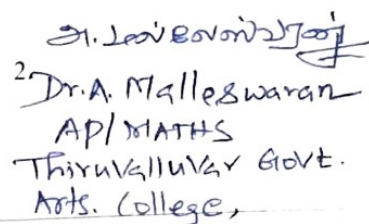 அ. மல்லேஸ்வரன்
2
Dr. A. Malleswaran
AP/MATHS
Thiruvalluvar Govt.
Arts. College,